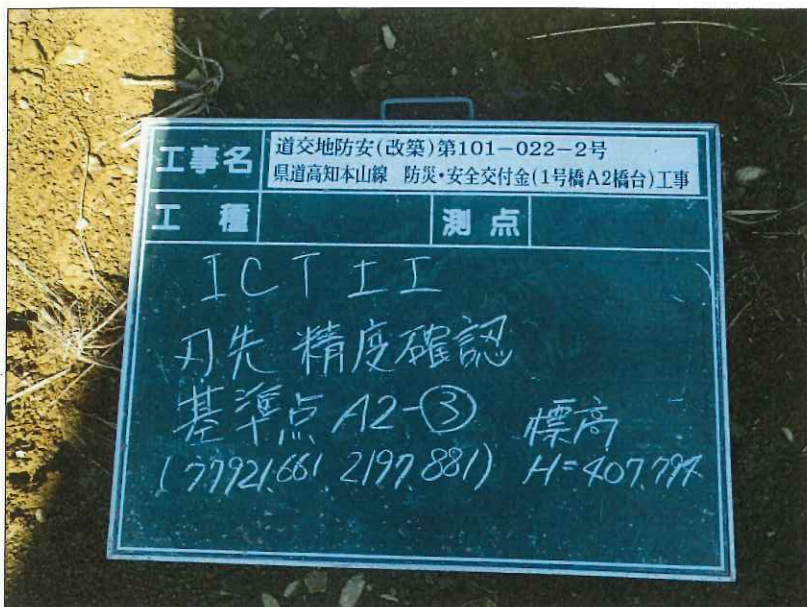 工事名
道交地防安(改築)第101-022-2号
県道高知本山線 防災・安全交付金(1号橋A2橋台)工事
工種
測点
ICT土工
刃先 精度確認
基準点 A2-③
標高
(77921.661 2197.881) H=407.794